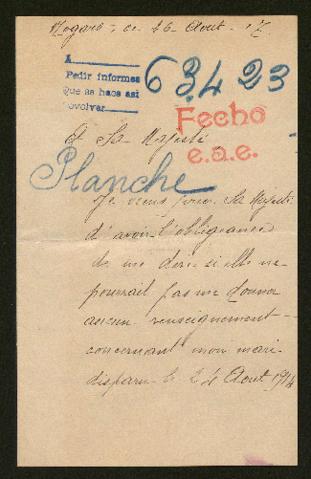 ce 26 Août 17
A
Pedir informes
que as haos asi
evolver
63423
Fecho
e.a.e.
A Sa Majesté
Planche
Je viens prier Sa Majesté
d'avoir l'obligeance
de me dire si elle ne
pourrait pas me donner
aucun renseignement
concernant mon mari
disparu le 24 Août 1914